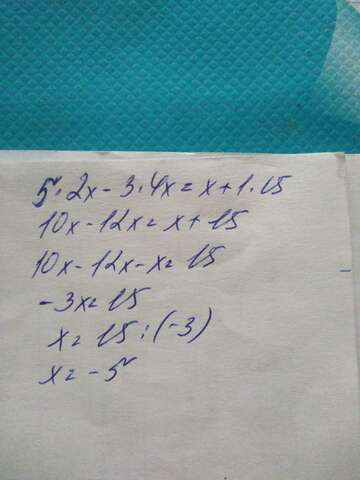 5·2x-3·4x=x+1·15
10x-12x=x+15
10x-12x-x=15
-3x=15
x=15:(-3)
x=-5